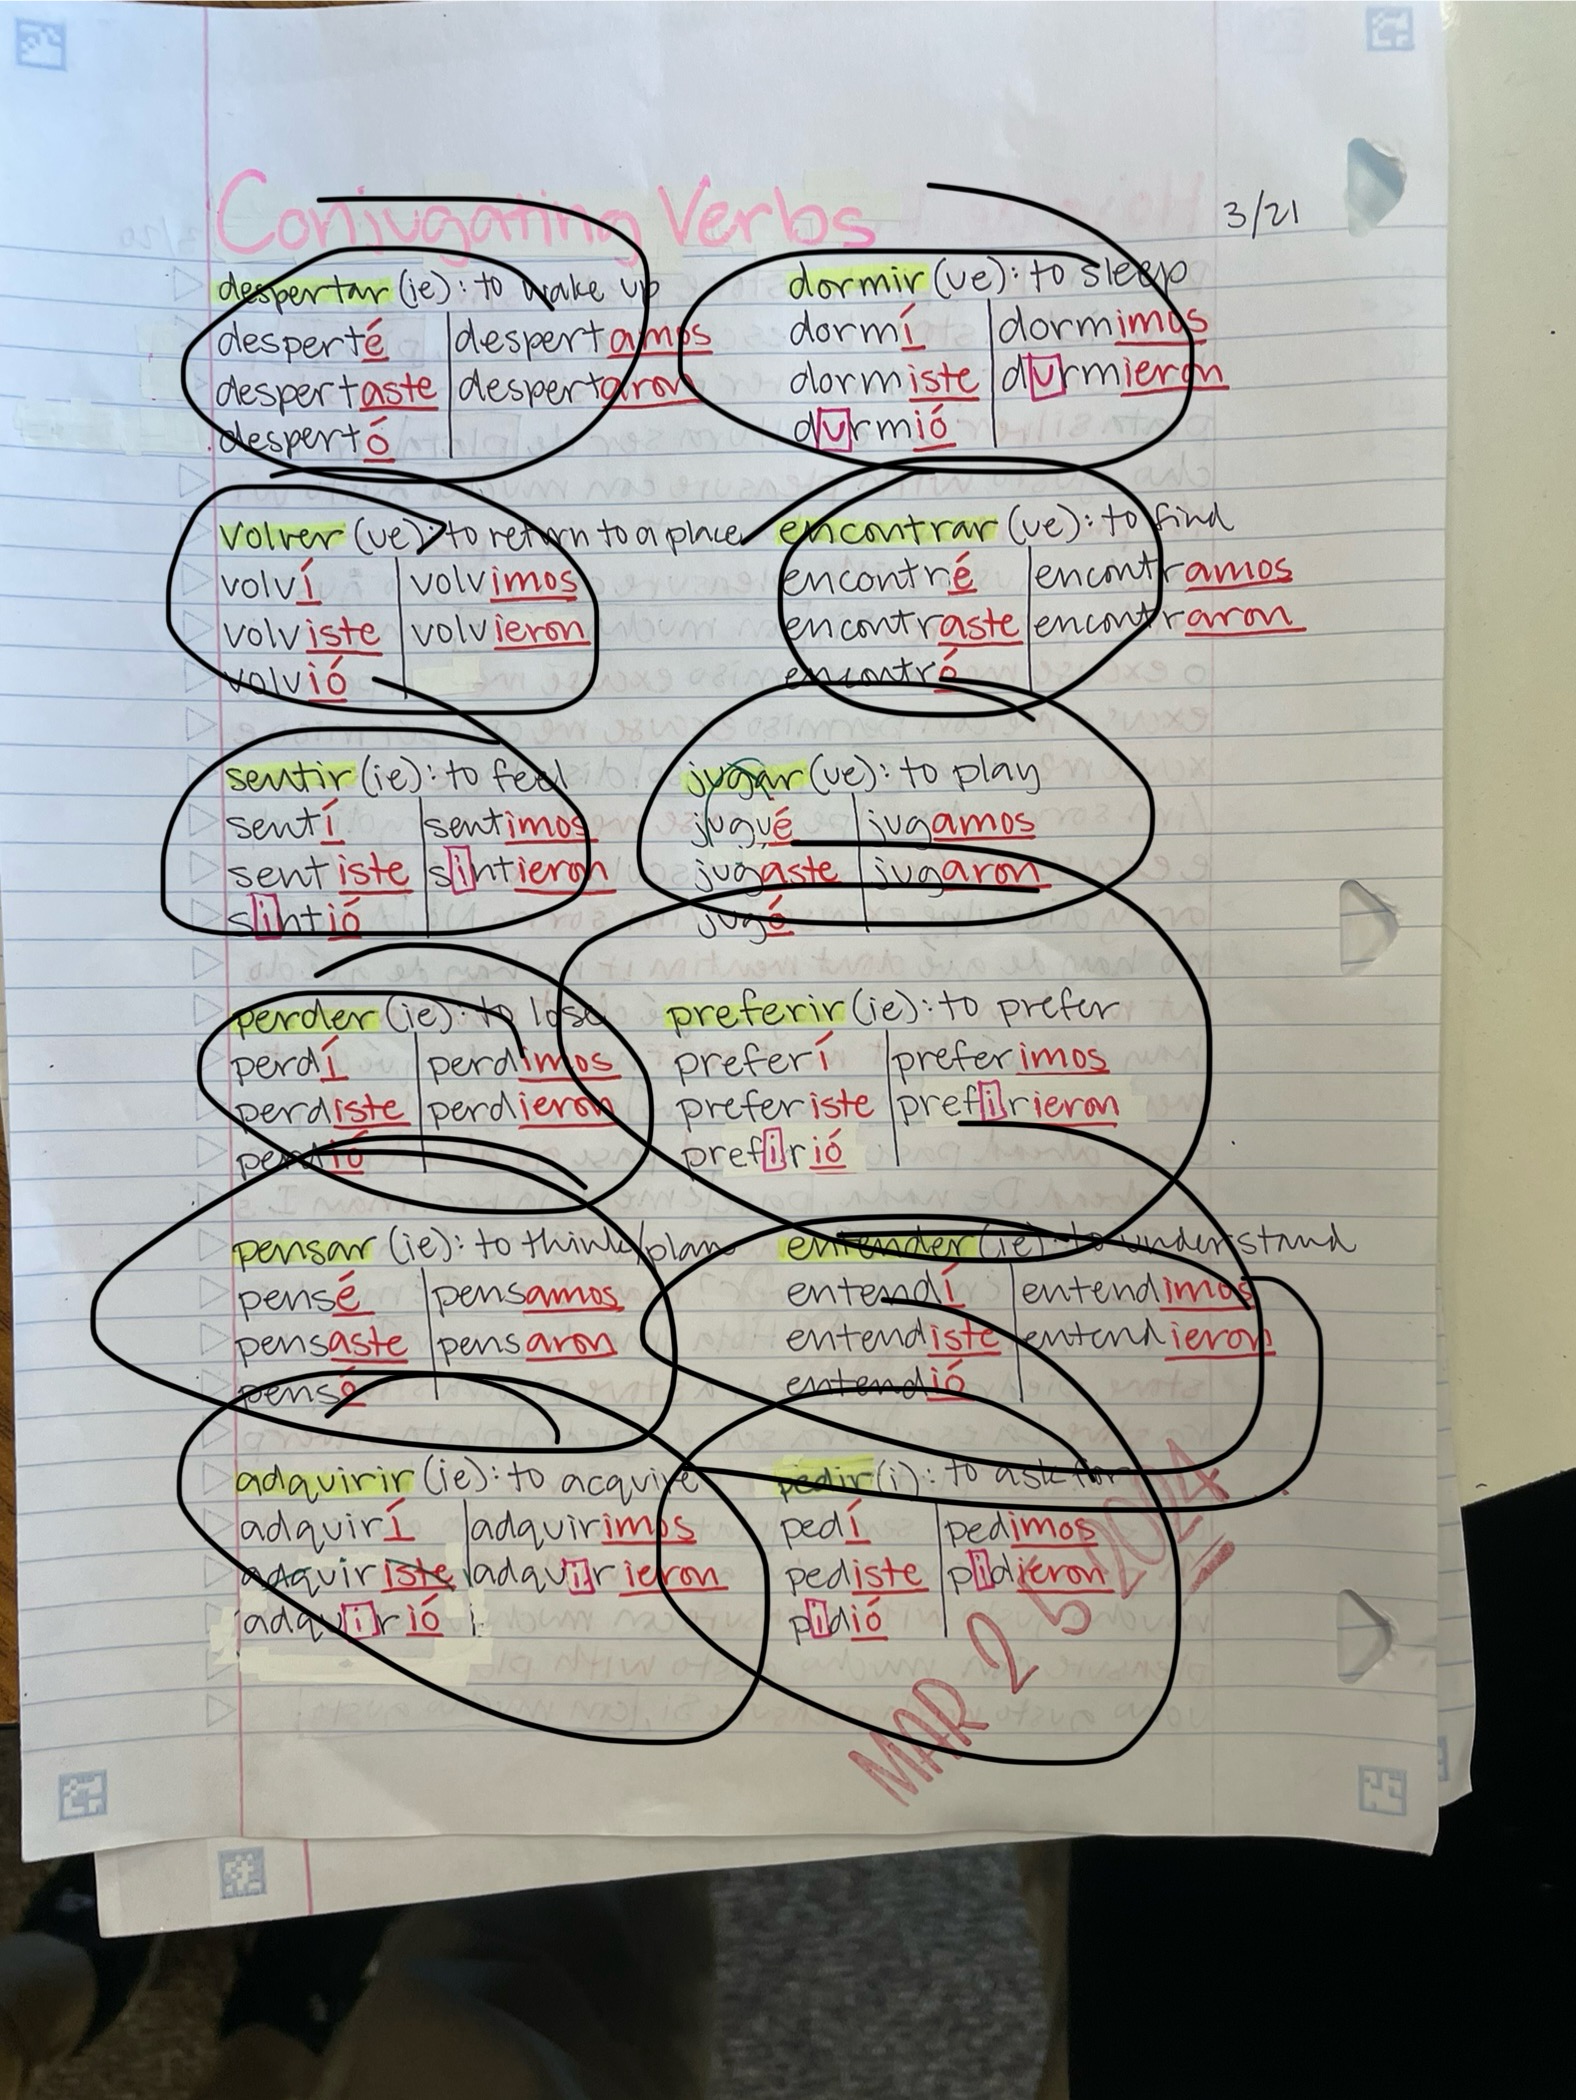 Conjugating Verbs
3/21
despertar (ie): to wake up
desperté despertamos
despertaste despertaron
despertó
dormir (ue): to sleep
dormí dormimos
dormiste durmieron
durmió
volver (ue): to return to a place
volví volvimos
volviste volvieron
volvió
encontrar (ue): to find
encontré encontramos
encontraste encontraron
encontró
sentir (ie): to feel
sentí sentimos
sentiste sintieron
sintió
jugar (ue): to play
jugué jugamos
jugaste jugaron
jugó
perder (ie): to lose
perdí perdimos
perdiste perdieron
perdió
preferir (ie): to prefer
preferí preferimos
preferiste prefirieron
prefirió
pensar (ie): to think/plan
pensé pensamos
pensaste pensaron
pensó
entender (ie): to understand
entendí entendimos
entendiste entendieron
entendió
adquirir (ie): to acquire
adquirí adquirimos
adquiriste adquirieron
adquirió
pedir (i): to ask for
pedí pedimos
pediste pidieron
pidió
MAR 25 2024